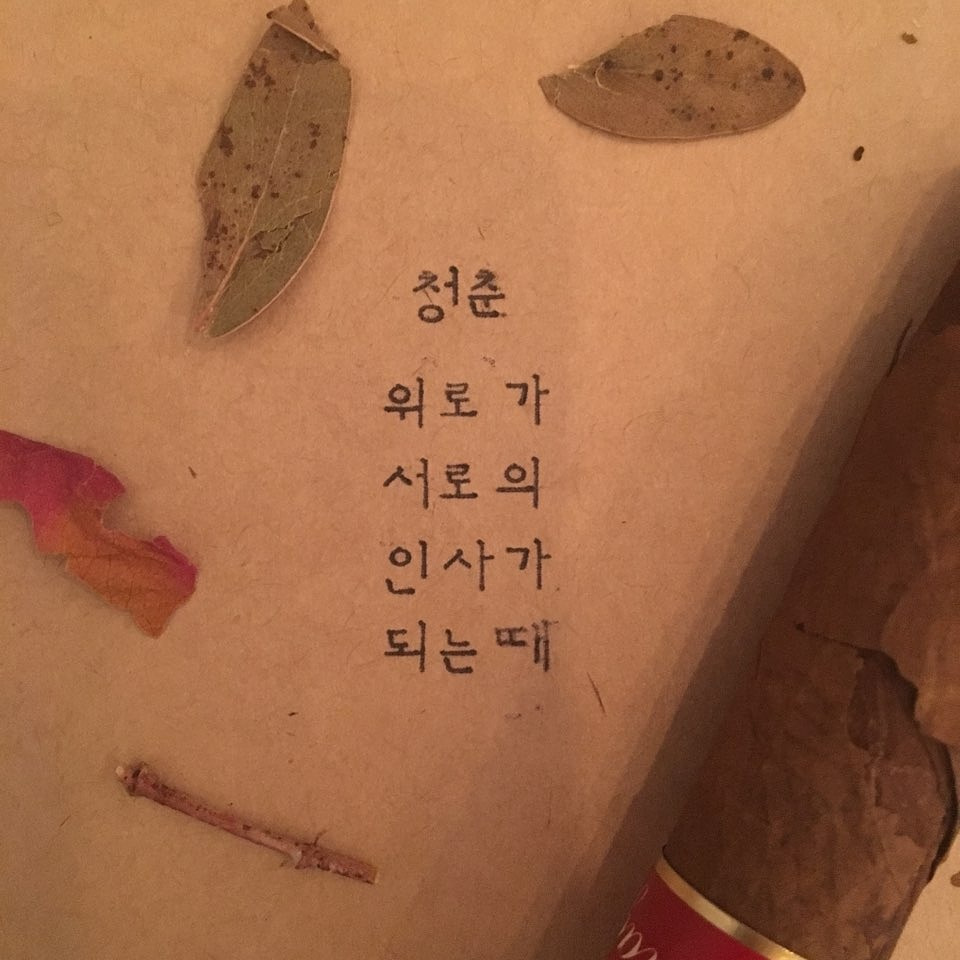 청춘
위로 가
서로 의
인사가
되는 때